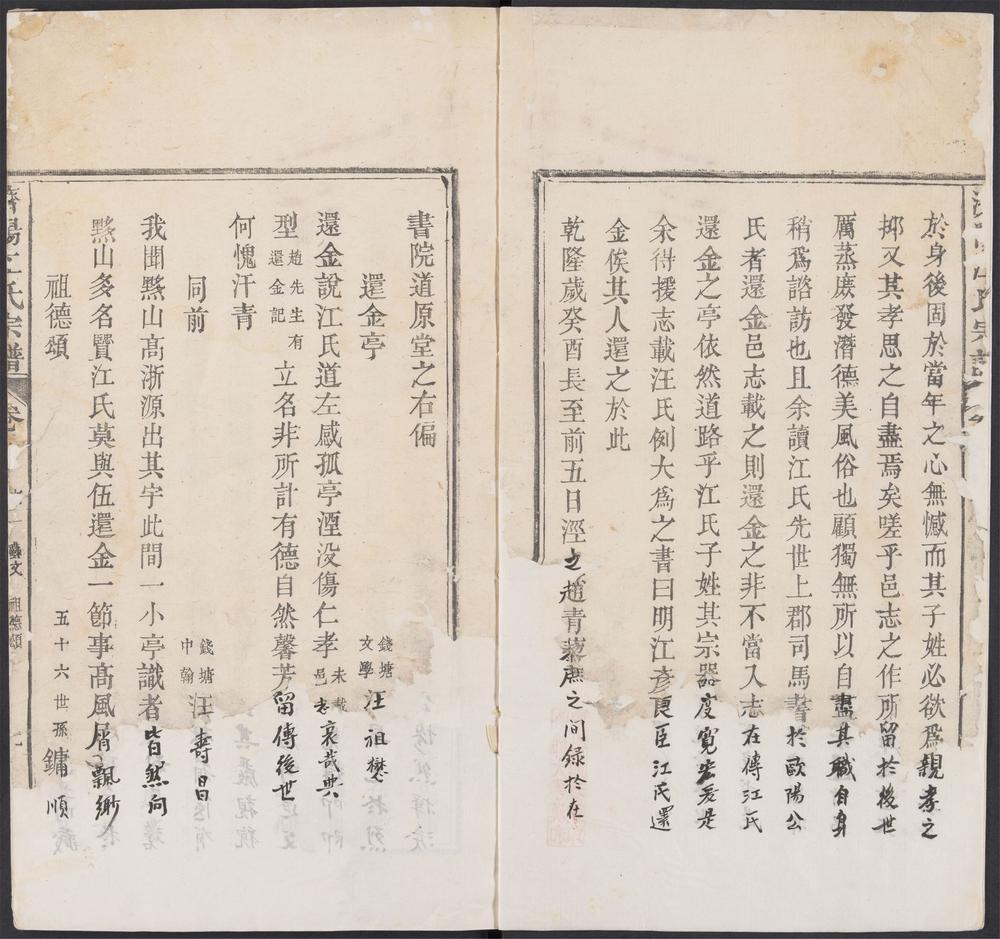 於身後固於當年之心無憾而其子姓必欲爲親孝之
抑又其孝思之自盡焉矣嗟乎邑志之作所留於後世
厲蒸庶發潛德美風俗也顧獨無所以自盡其職自身
稍爲諮訪也且余讀江氏先世上郡司馬耆於歐陽公
氏者還金邑志載之則還金之非不當入志在傳江氏
還金之亭依然道路乎江氏子姓其宗器度寬宏爰是
余得援志載汪氏例大爲之書曰明江彥良臣江氏還
金俟其人還之於此
乾隆歲癸酉長至前五日涇之趙青藜蔗之間録於在
書院道原堂之右偏
還金亭
錢塘文學汪祖懋
還金說江氏道左感孤亭湮没傷仁孝未載邑志哀哉典
型趙先生有還金記立名非所計有德自然馨芳留傳後世
何愧汗青
同前
錢塘中翰汪壽昌
我聞黟山高浙源出其宇此間一小亭識者皆然向
黟山多名賢江氏莫與伍還金一節事高風屑飄緲
祖德頌
五十六世孫鏞順
濟陽江氏宗譜 卷 藝文 祖德頌